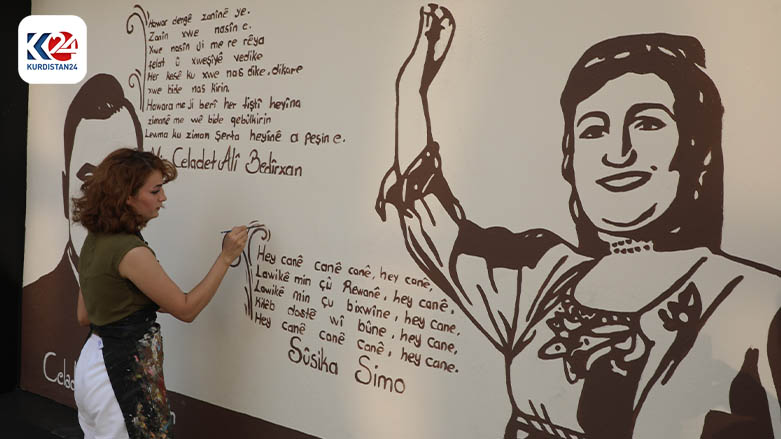 K24
KURDISTAN24
Hawar dengê zanînê ye.
Zanîn xwe nasîn e.
Xwe nasîn ji me re rêya
felat û xweşiyê vedike
Her kesê ku xwe nas dike, dikare
xwe bide nas kirin.
Hawara me ji berî her tiştî heyîna
zimanê me wê bide qebûlkirin
Lewma ku ziman şerta heyînê a pêşîn e.
Mîr Celadet Alî Bedirxan
Hey canê canê canê, hey canê,
Lawikê min çû Rewanê, hey canê,
Lawikê min çu bixwîne, hey cane,
Kitêb dostê wî bûne, hey cane,
Hey canê canê canê, hey canê.
Sûsika Simo
Celad